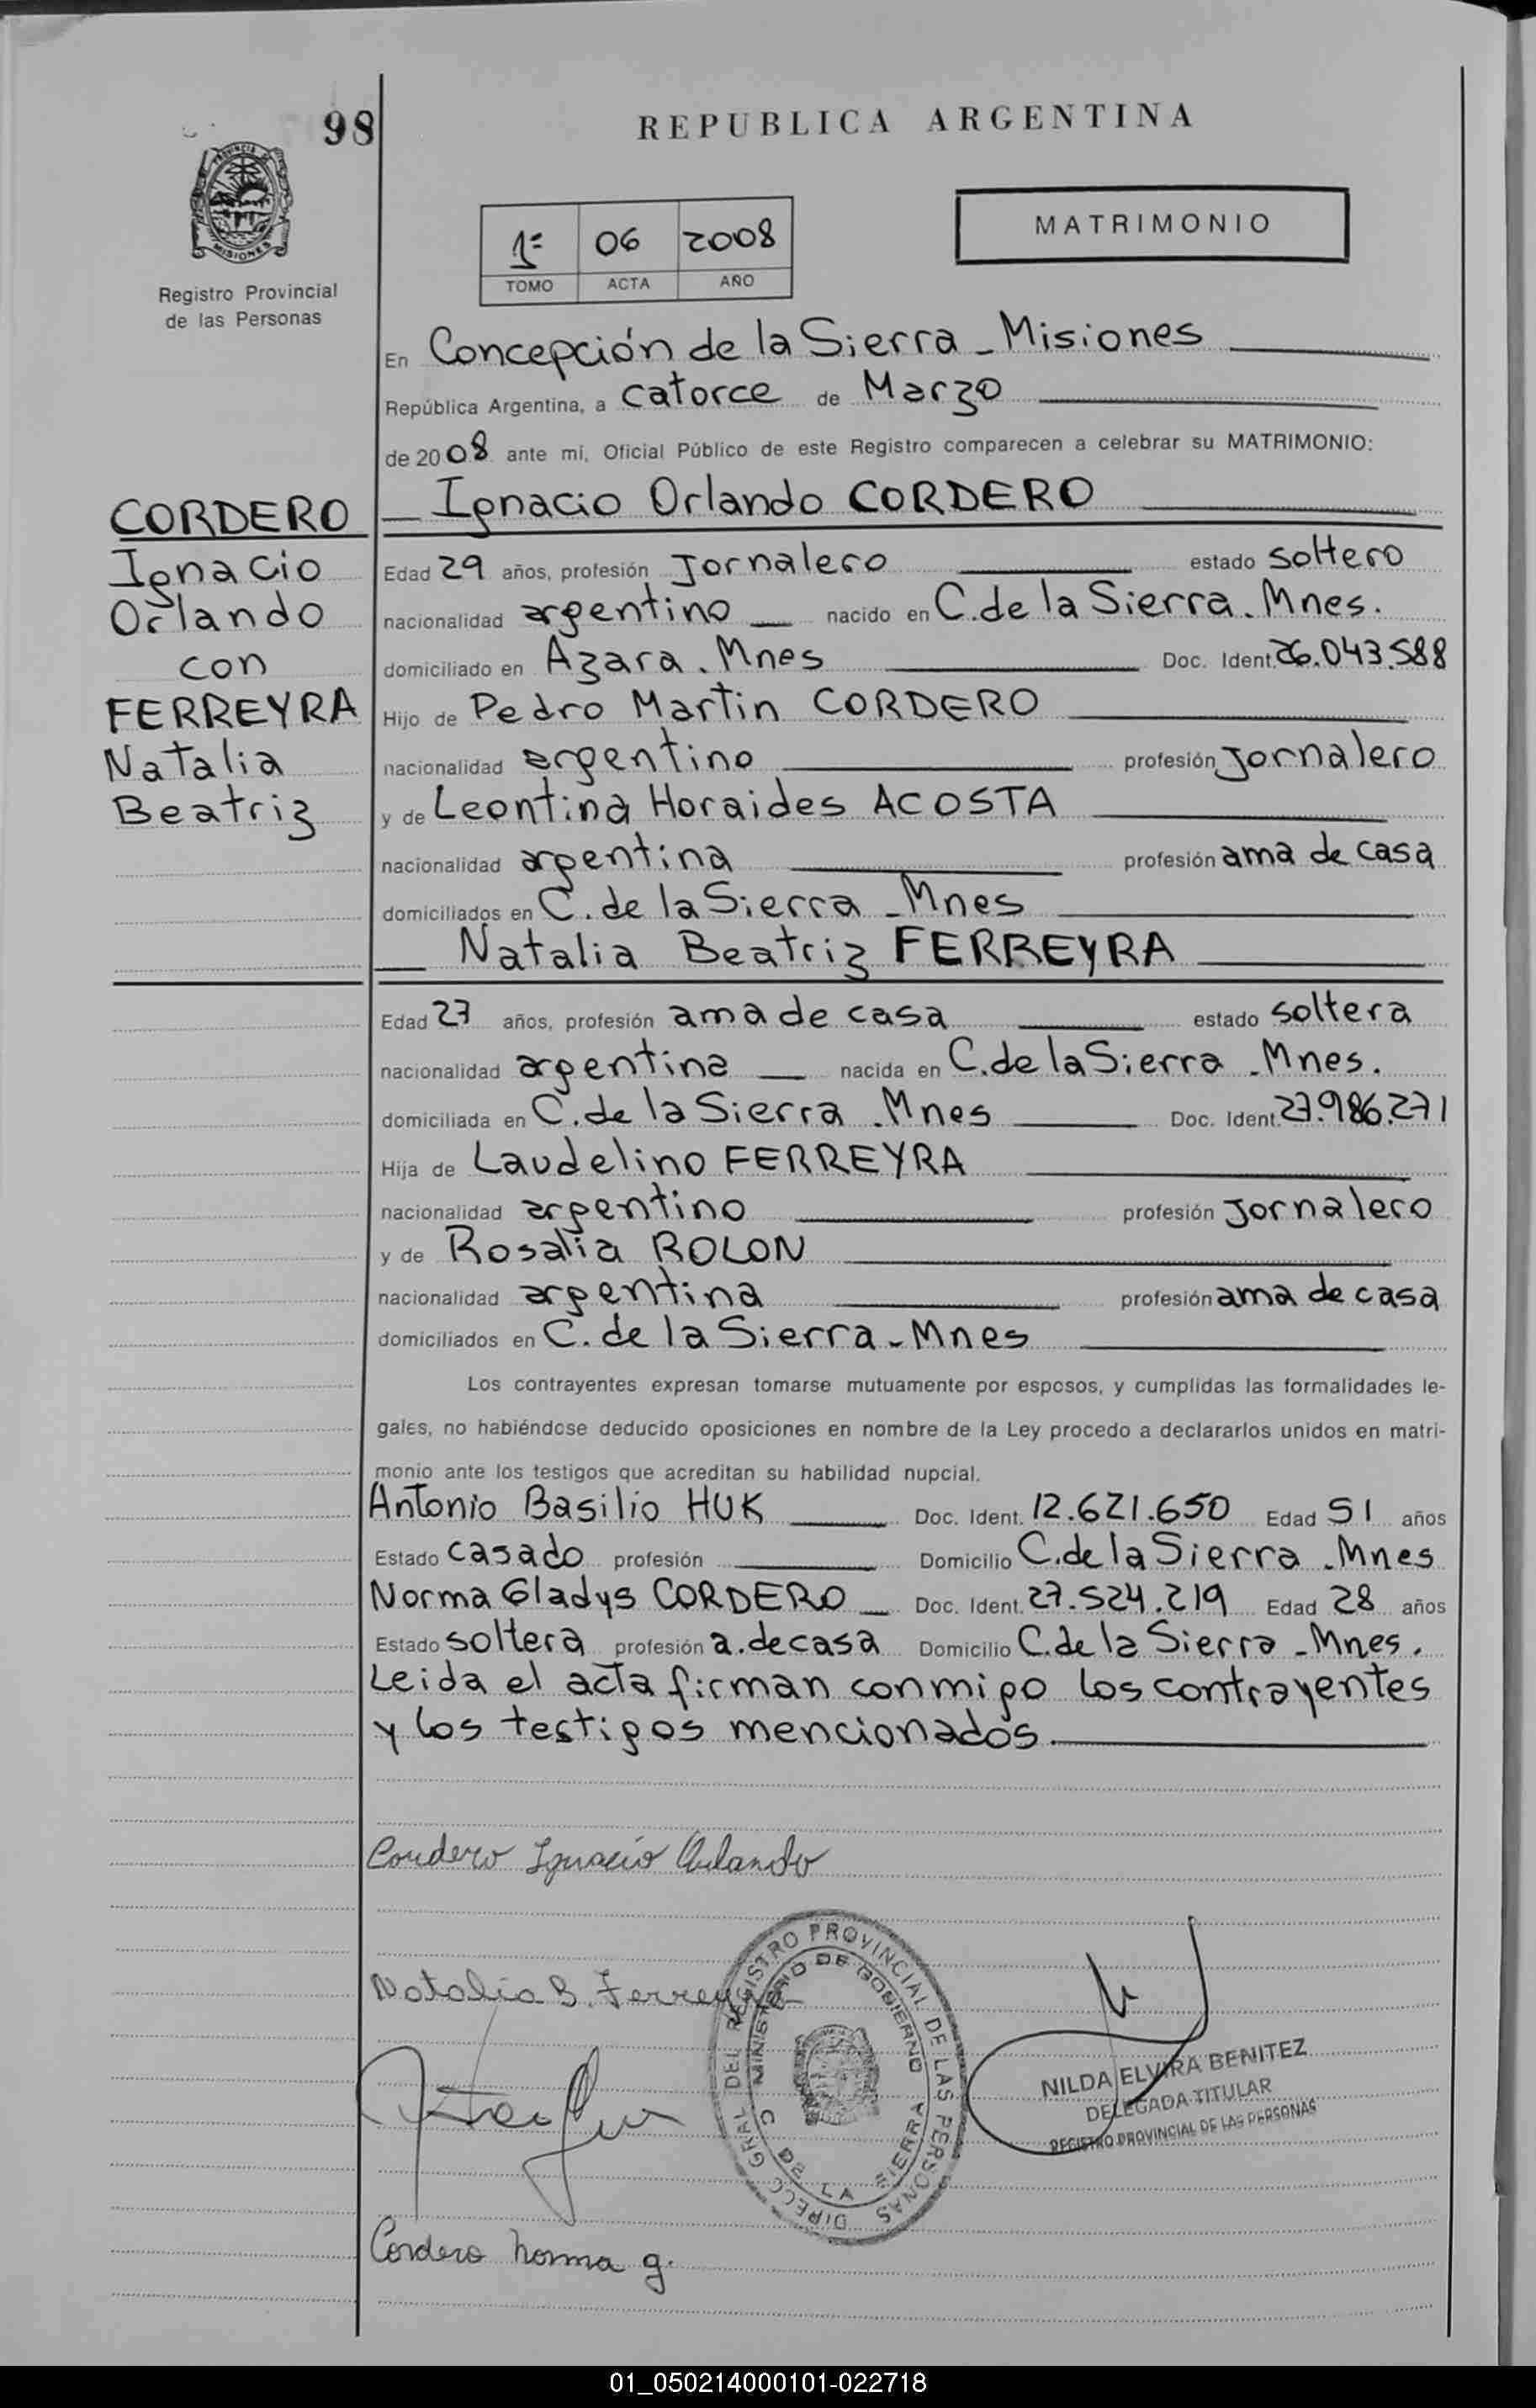 98
REPUBLICA ARGENTINA
PROVINCIA DE MISIONES
Registro Provincial
de las Personas
MATRIMONIO
1º 06 2008
TOMO ACTA AÑO
En Concepción de la Sierra - Misiones
República Argentina, a catorce de Marzo
de 2008 ante mí, Oficial Público de este Registro comparecen a celebrar su MATRIMONIO:
CORDERO
Ignacio
Orlando
con
FERREYRA
Natalia
Beatriz
Ignacio Orlando CORDERO
Edad 29 años, profesión Jornalero estado soltero
nacionalidad argentino nacido en C. de la Sierra. Mnes.
domiciliado en Azara. Mnes Doc. Ident. 26.043.588
Hijo de Pedro Martin CORDERO
nacionalidad argentino profesión Jornalero
y de Leontina Horaides ACOSTA
nacionalidad argentina profesión ama de casa
domiciliados en C. de la Sierra - Mnes
Natalia Beatriz FERREYRA
Edad 27 años, profesión ama de casa estado soltera
nacionalidad argentina nacida en C. de la Sierra - Mnes.
domiciliada en C. de la Sierra . Mnes Doc. Ident. 27.986.271
Hija de Laudelino FERREYRA
nacionalidad argentino profesión Jornalero
y de Rosalia ROLON
nacionalidad argentina profesión ama de casa
domiciliados en C. de la Sierra - Mnes
Los contrayentes expresan tomarse mutuamente por esposos, y cumplidas las formalidades le-
gales, no habiéndose deducido oposiciones en nombre de la Ley procedo a declararlos unidos en matri-
monio ante los testigos que acreditan su habilidad nupcial.
Antonio Basilio HUK Doc. Ident. 12.621.650 Edad 51 años
Estado casado profesión Domicilio C. de la Sierra - Mnes
Norma Gladys CORDERO Doc. Ident. 27.524.219 Edad 28 años
Estado soltera profesión a. de casa Domicilio C. de la Sierra - Mnes.
Leida el acta firman conmigo los contrayentes
y los testigos mencionados.
Cordero Ignacio Orlando
Natalia B. Ferreyra
DIRECC GRAL DEL REGISTRO PROVINCIAL DE LAS PERSONAS
MINISTERIO DE GOBIERNO
C DE LA SIERRA
NILDA ELVIRA BENITEZ
DELEGADA TITULAR
REGISTRO PROVINCIAL DE LAS PERSONAS
Cordero Norma g.
01_050214000101-022718